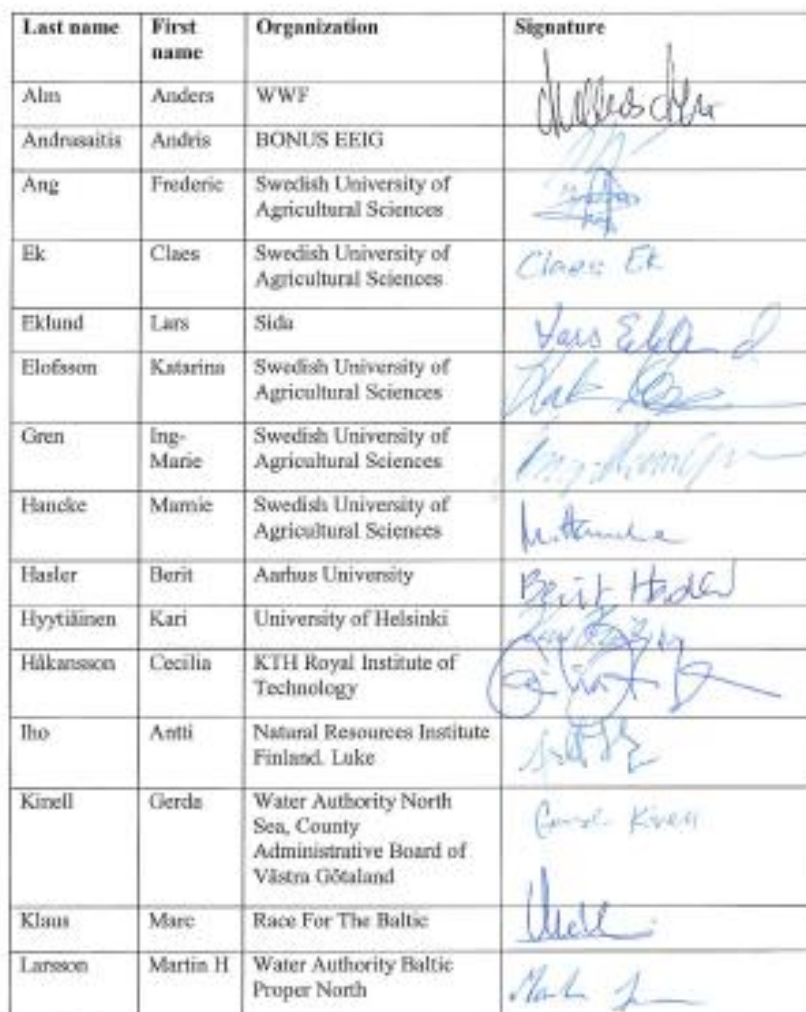 Last name First name Organization Signature
Alm Anders WWF
Andrusaitis Andris BONUS EEIG
Ang Frederic Swedish University of
Agricultural Sciences
Ek Claes Swedish University of Claes Ek
Agricultural Sciences
Eklund Lars Sida Lars Eklund
Elofsson Katarina Swedish University of
Agricultural Sciences
Gren Ing-
Marie Swedish University of
Agricultural Sciences
Hancke Marnie Swedish University of M. Hancke
Agricultural Sciences
Hasler Berit Aarhus University Berit Hasler
Hyytiäinen Kari University of Helsinki
Håkansson Cecilia KTH Royal Institute of
Technology
Iho Antti Natural Resources Institute
Finland. Luke
Kinell Gerda Water Authority North Gerda Kinell
Sea, County
Administrative Board of
Västra Götaland
Klaus Marc Race For The Baltic
Larsson Martin H Water Authority Baltic
Proper North